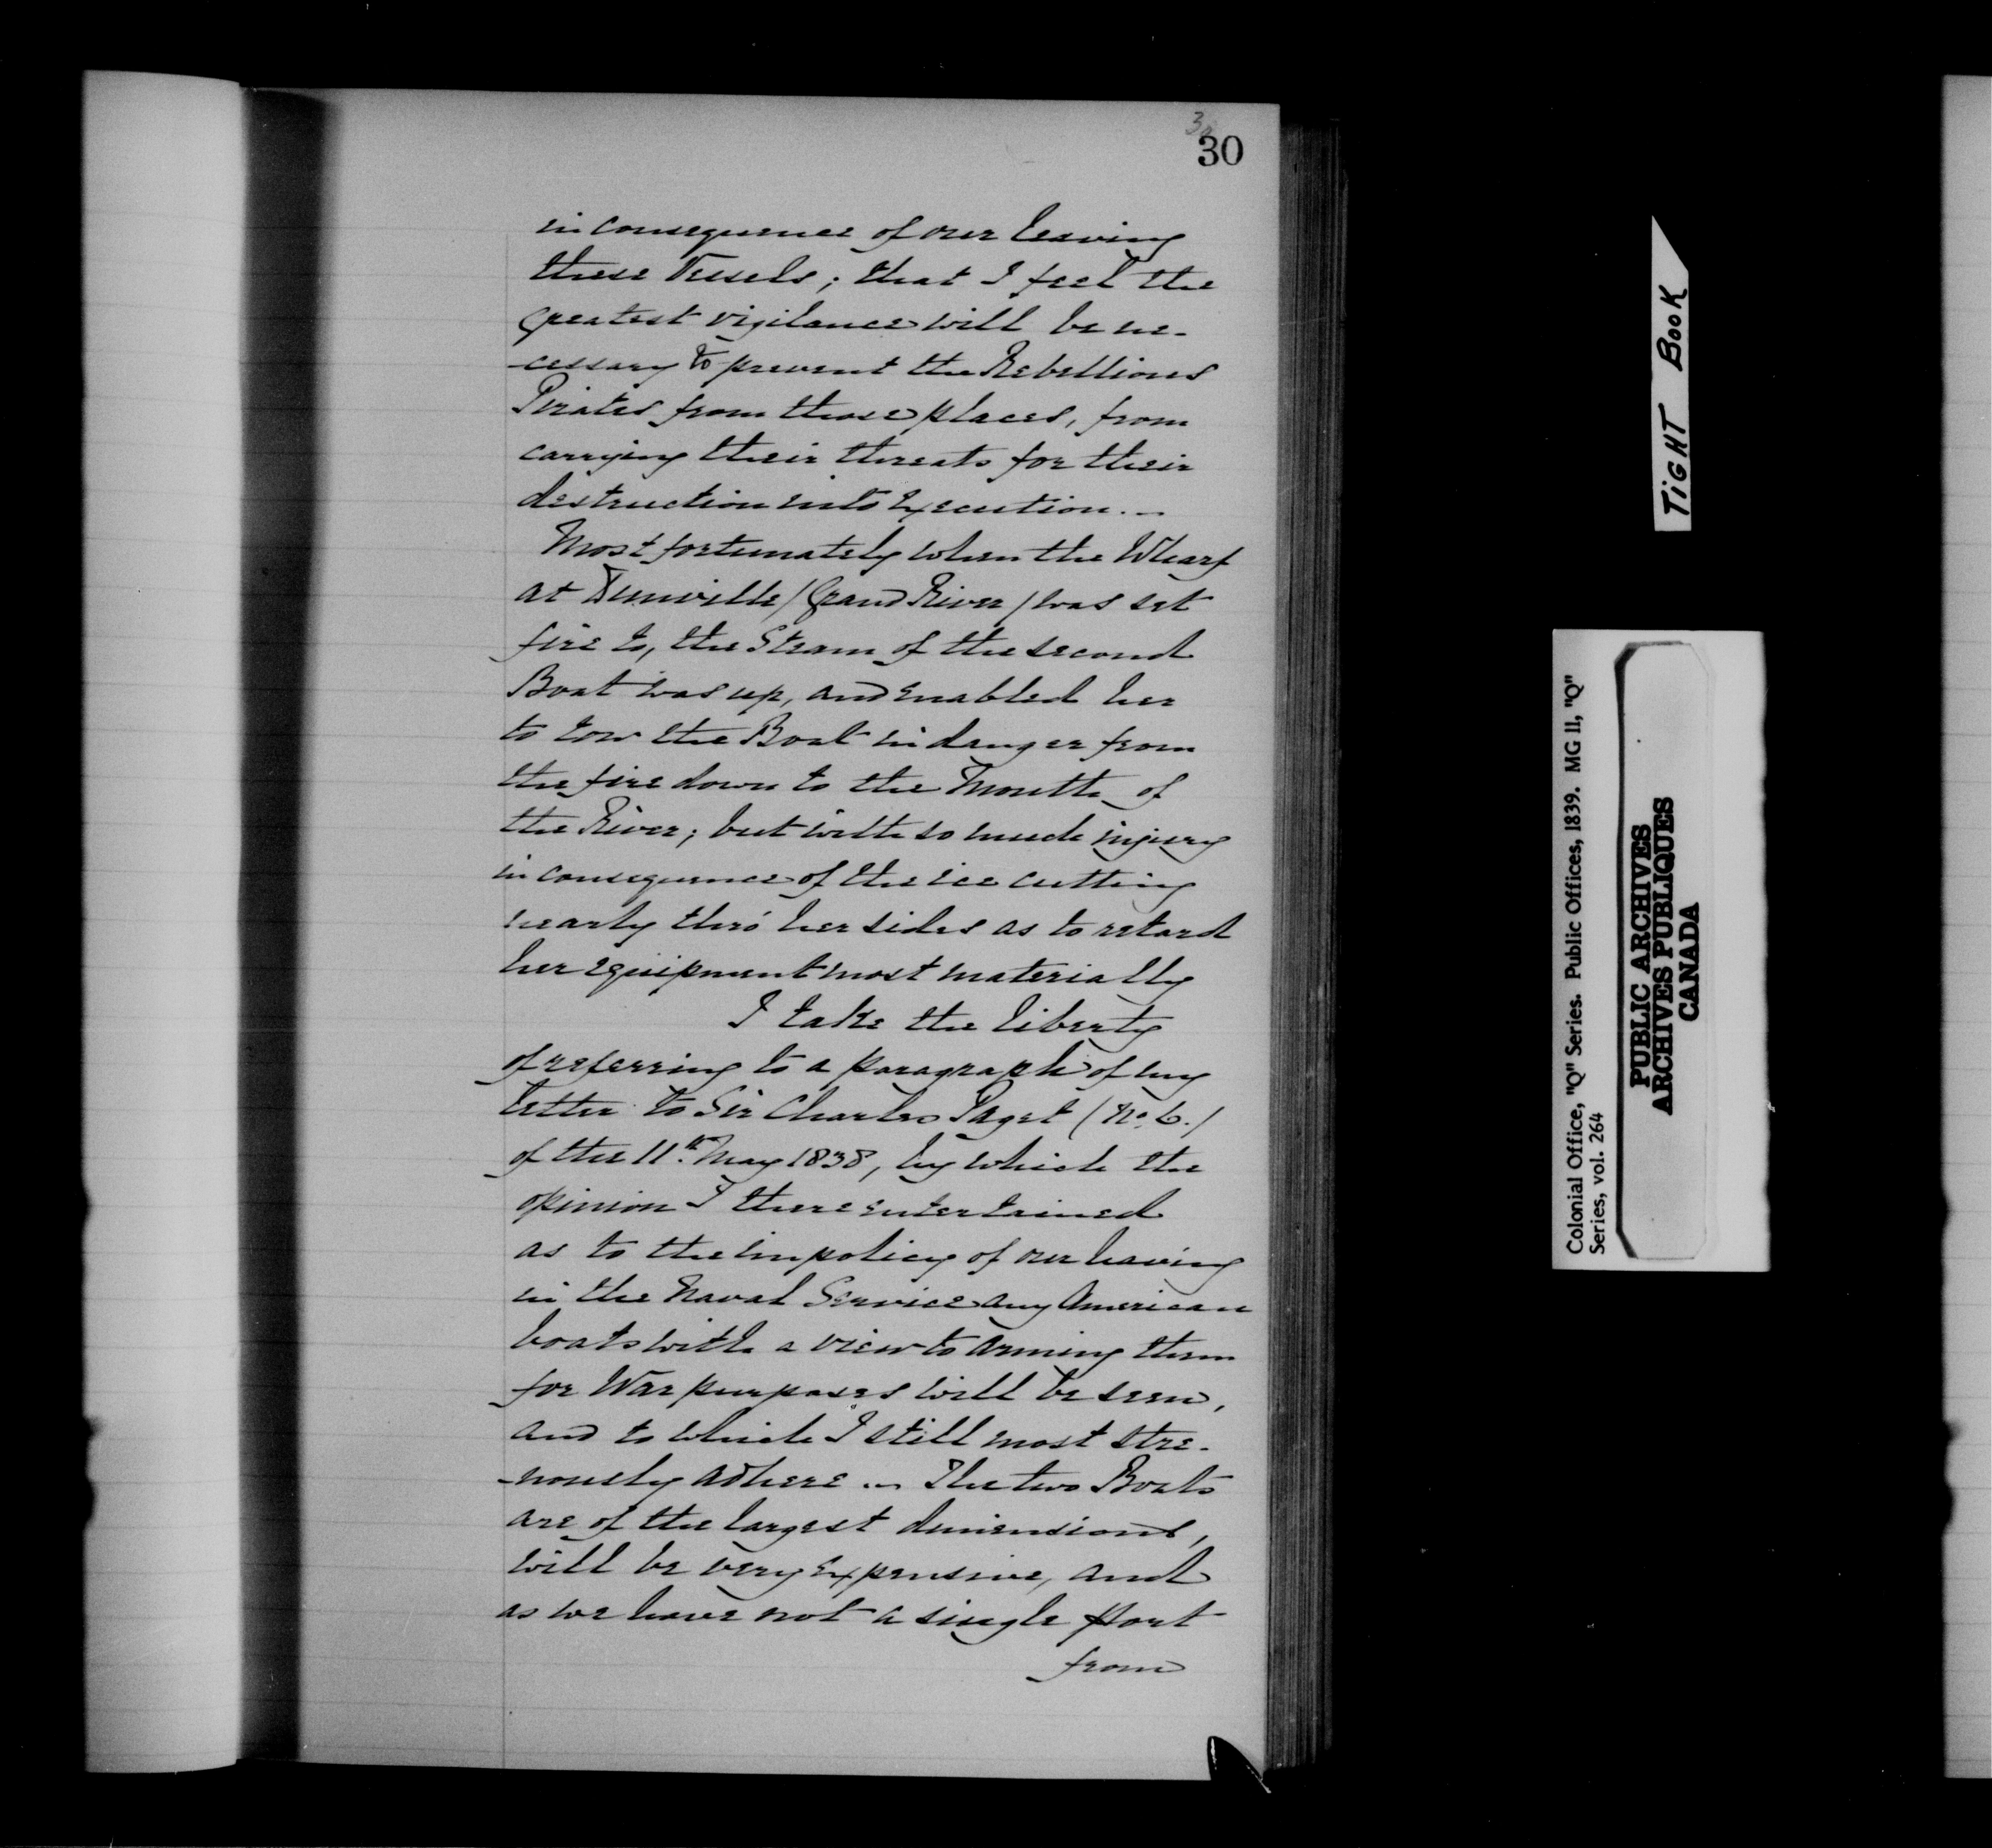 30
30
in consequence of our leaving
these Vessels; that I feel the
greatest vigilance will be ne-
-cessary to prevent the Rebellious
Pirates from those places, from
carrying their threats for their
destruction into Execution. _
Most fortunately when the Wharf
at Dunville / Grand River / was set
fire to, the Steam of the second
Boat was up, and enabled her
to tow the Boat in danger from
the fire down to the Mouth of
the River; but with so much injury
in consequence of the ice cutting
nearly thro' her sides as to retard
her equipment most materially
I take the liberty
of referring to a paragraph of my
letter to Sir Charles Paget (No. 6.)
of the 11th May 1838, by which the
opinion I there entertained
as to the impolicy of our having
in the Naval Service any American
boats with a view to arming them
for War purposes will be seen,
and to which I still most stre-
-nously adhere _ The two Boats
are of the largest dimensions,
will be very expensive, and
as we have not a single Port
from
TIGHT BOOK
Colonial Office, "Q" Series. Public Offices, 1839. MG 11, "Q"
Series, vol. 264
PUBLIC ARCHIVES
ARCHIVES PUBLIQUES
CANADA